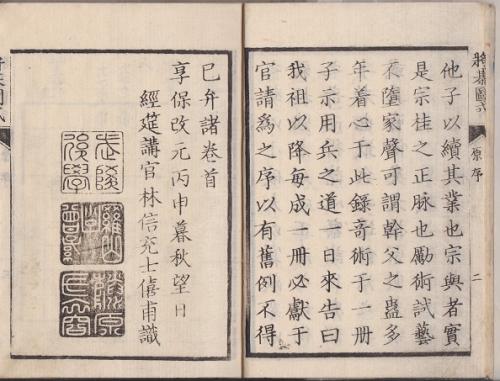 將棊圖式
原序
二
他子以續其業也宗與者實
是宗桂之正脉也勵術試藝
不墮家聲可謂幹父之蠱多
年着心于此錄竒術于一册
子示用兵之道一日來告曰
我祖以降每成一册必獻于
官請為之序以有舊例不得
已弁諸卷首
享保改元丙申暮秋望日
經筵講官林信充士僖甫識